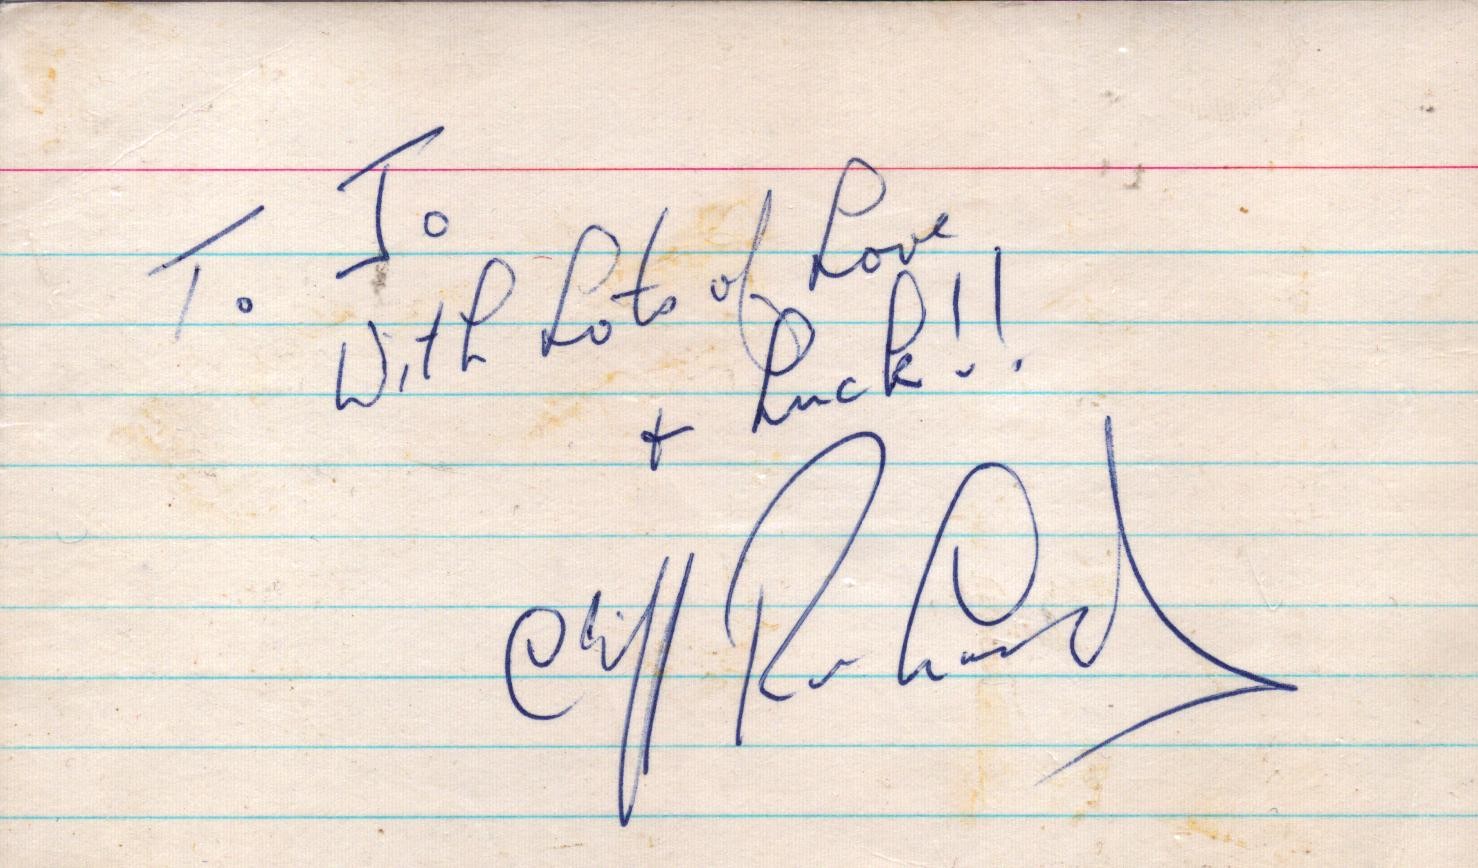 To Jo
With Lots of Love
+ Luck!!
Cliff Richard